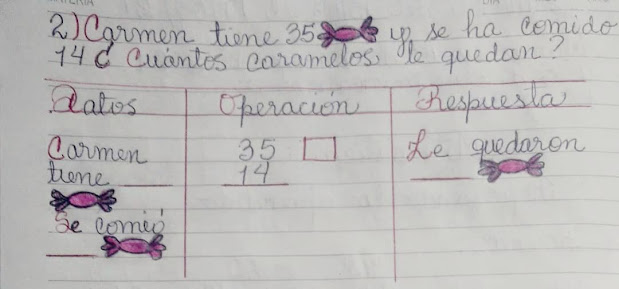 2) Carmen tiene 35 y se ha comido
14 ¿ Cuántos caramelos le quedan?
Datos Operación Respuesta
Carmen 35 Le quedaron
tiene ____ 14 ____
Se comió
____